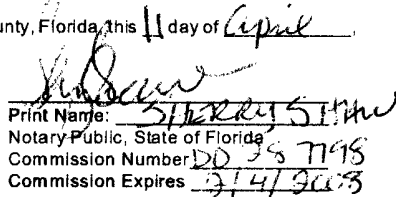 unty, Florida, this 11 day of April
Print Name: SHERRY
Notary Public, State of Florida
Commission Number DD 287798
Commission Expires 2/4/2008